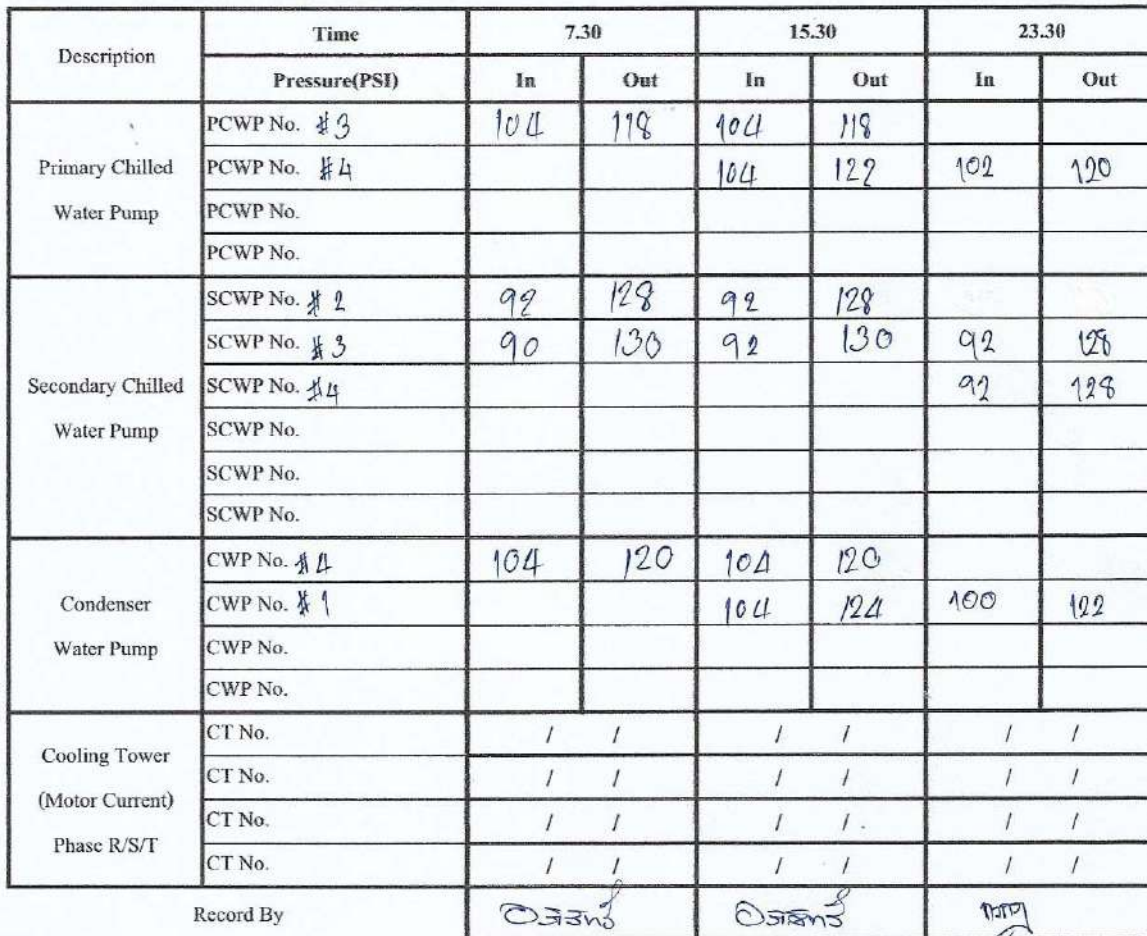 Description Time 7.30 15.30 23.30
Pressure(PSI) In Out In Out In Out
Primary Chilled Water Pump
PCWP No. #3 104 118 104 118
PCWP No. #4 104 122 102 120
PCWP No.
PCWP No.
Secondary Chilled Water Pump
SCWP No. #2 92 128 92 128
SCWP No. #3 90 130 92 130 92 128
SCWP No. #4 92 128
SCWP No.
SCWP No.
SCWP No.
Condenser Water Pump
CWP No. #4 104 120 104 120
CWP No. #1 104 124 100 122
CWP No.
CWP No.
Cooling Tower (Motor Current) Phase R/S/T
CT No. / / / / / /
CT No. / / / / / /
CT No. / / / / / /
CT No. / / / / / /
Record By